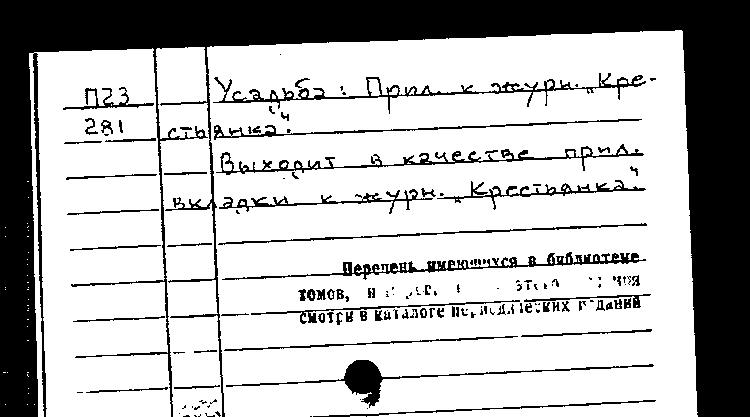 П23
281
Усадьба : Прил. к журн. „Кре-
стьянка“.
Выходит в качестве прил.
вкладки к журн. „Крестьянка“.
Перечень имеющихся в библиотеке
томов,
смотри в каталоге периодических изданий